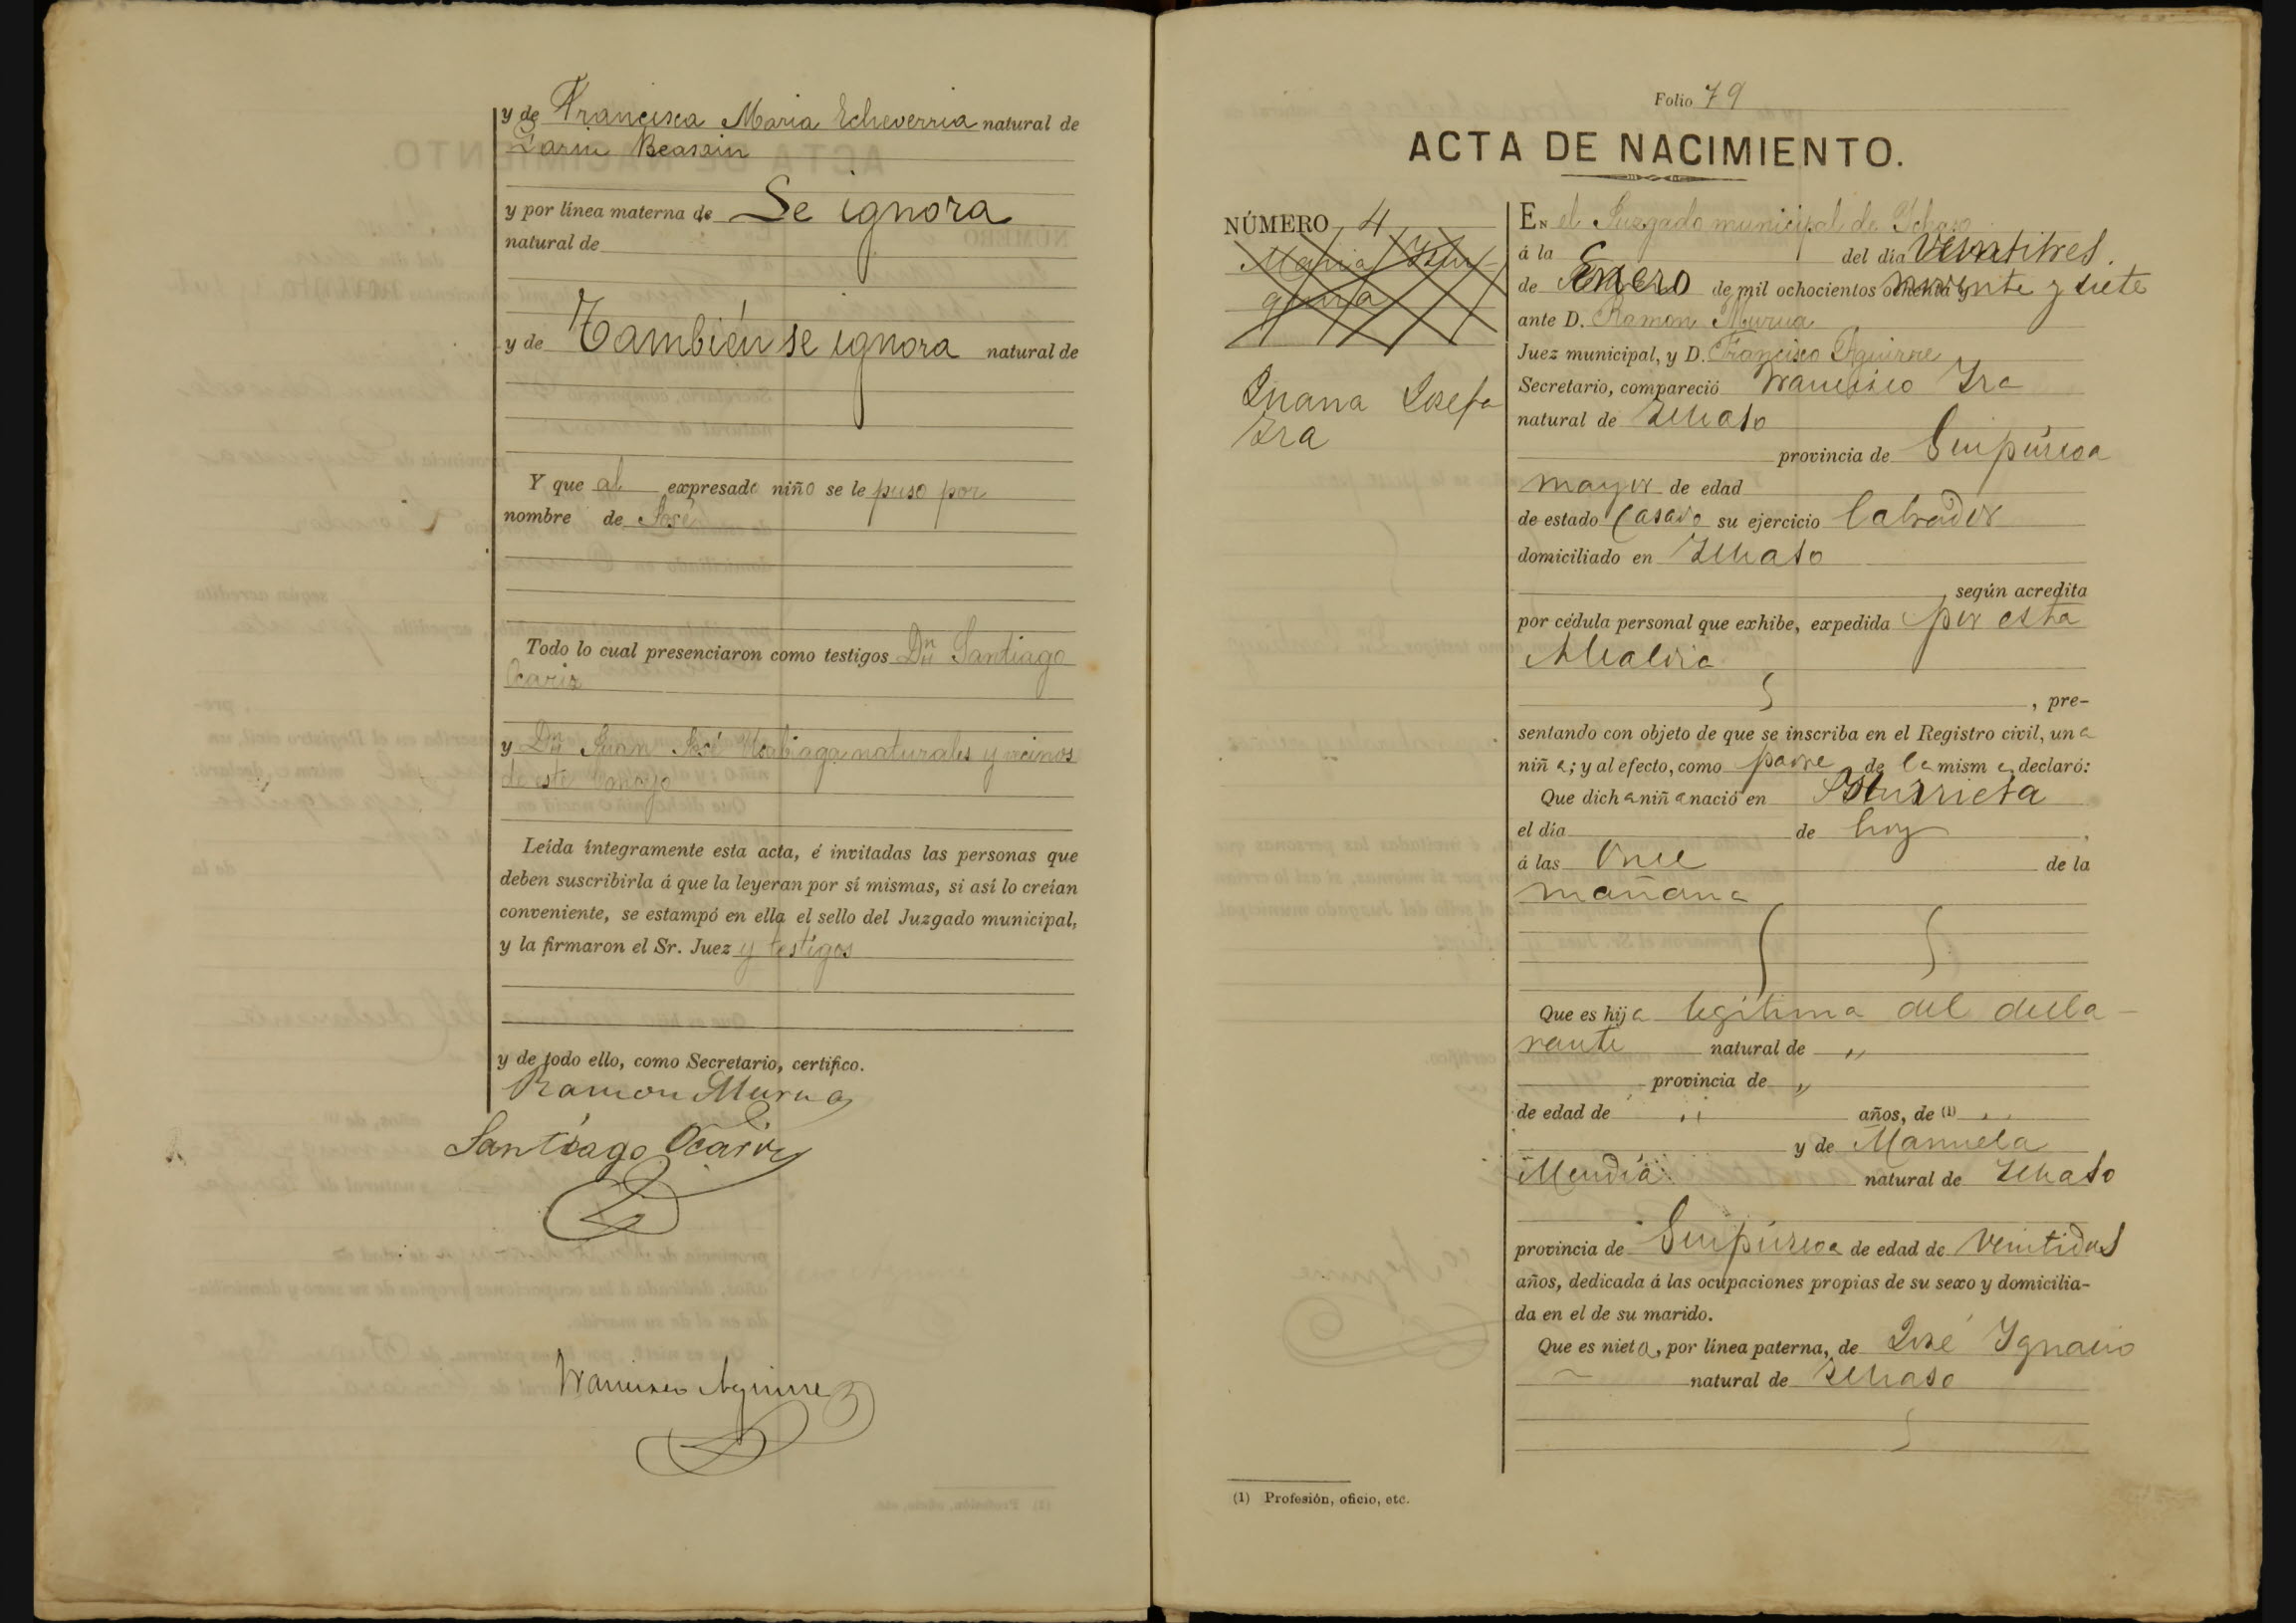 y de Francisca Maria Echeverria natural de
Beasain
y por línea materna de Se ignora
natural de
y de También se ignora natural de
Y que al expresado niño se le puso por
nombre de José
Todo lo cual presenciaron como testigos Dn Santiago
Ocariz
y Dn Juan José naturales y vecinos
de este
Leída íntegramente esta acta, é invitadas las personas que
deben suscribirla á que la leyeran por sí mismas, si así lo creían
conveniente, se estampó en ella el sello del Juzgado municipal,
y la firmaron el Sr. Juez y testigos
y de todo ello, como Secretario, certifico.
Ramon Murua
Santiago Ocariz
Francisco Aguirre
Folio 79
ACTA DE NACIMIENTO.
NÚMERO 4
Maria
Juana Josefa
Yra
En el Juzgado municipal de Ichaso
á la del dia veintitres
de Enero de mil ochocientos ochenta y noventa y siete
ante D. Ramon Murua
Juez municipal, y D. Francisco Aguirre
Secretario, compareció Francisco Yra
natural de Ichaso
provincia de Guipúzcoa
mayor de edad
de estado Casado su ejercicio labrador
domiciliado en Ichaso
, según acredita
por cédula personal que exhibe, expedida por esta
Alcaldia
, pre-
sentando con objeto de que se inscriba en el Registro civil, una
niña; y al efecto, como padre de la misma, declaró:
Que dicha niña nació en
el día de hoy
á las once de la
mañana
Que es hija legítima del decla-
rante natural de "
provincia de "
de edad de " años, de (1) "
y de Manuela
Mendia natural de Ichaso
provincia de Guipúzcoa de edad de veintidos
años, dedicada á las ocupaciones propias de su sexo y domicilia-
da en el de su marido.
Que es nieta, por línea paterna, de José Ygnacio
natural de Ichaso
(1) Profesión, oficio, etc.